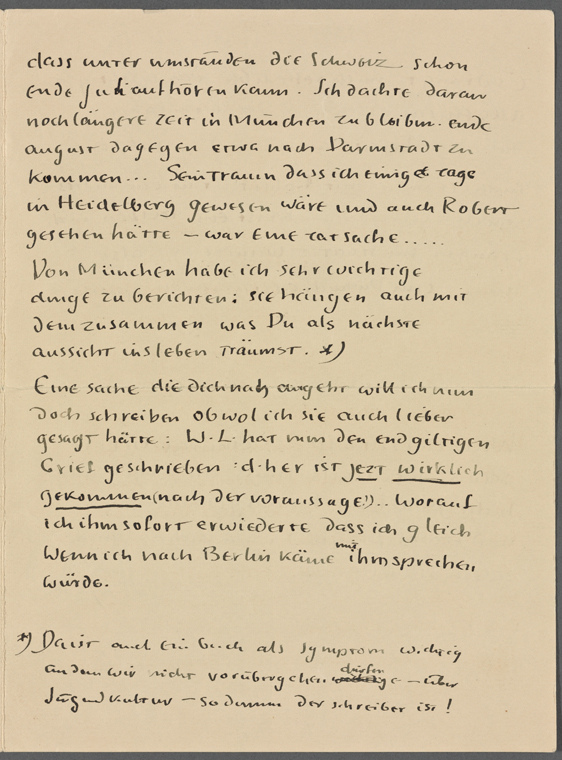 dass unter umständen die Schweiz schon
ende Juli aufhören kann. Ich dachte daran
noch längere zeit in München zu bleiben. ende
august dagegen etwa nach Darmstadt zu
kommen... Sein traum dass ich einige tage
in Heidelberg gewesen wäre und auch Robert
gesehen hätte – war eine tatsache.....
Von München habe ich sehr wichtige
dinge zu berichten: sie hängen auch mit
dem zusammen was Du als nächste
aussicht ins leben träumst. *)
Eine sache die dich nah angeht will ich nun
doch schreiben obwol ich sie auch lieber
gesagt hätte: W.L. hat nun den endgiltigen
Brief geschrieben: d.h er ist jezt wirklich
gekommen (nach der voraussage!).. worauf
ich ihm sofort erwiederte dass ich gleich
wenn ich nach Berlin käme mit ihm sprechen
würde.
*) Da ist auch ein buch als symptom wichtig
an dem wir nicht vorübergehen dürfen – über
Jugendkultur – so dumm der schreiber ist!